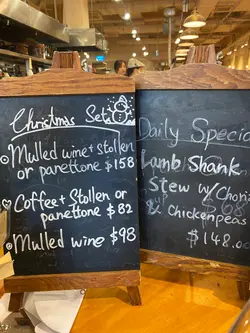 Christmas Set
Mulled wine + stollen
or panettone $158
Coffee + Stollen or
panettone $82
Mulled wine $98
Daily Specia
Lamb Shank
Stew w/ Choriz
& Chickenpeas
$148.0